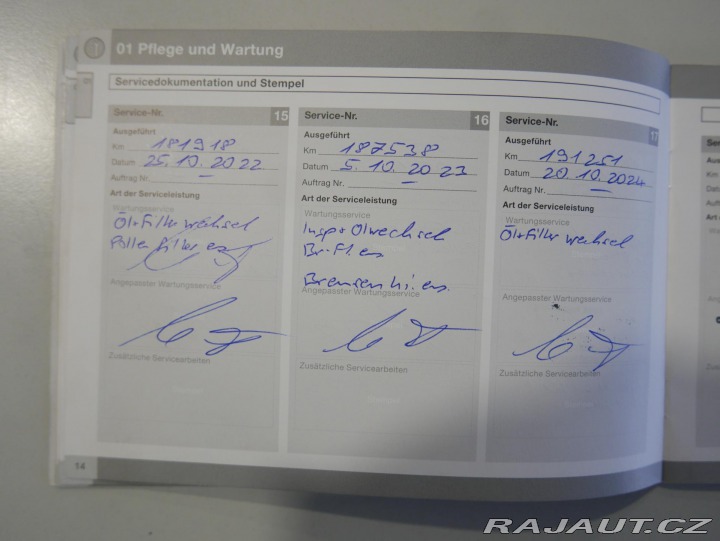 01 Pflege und Wartung
Servicedokumentation und Stempel
Service-Nr. 15
Ausgeführt
Km 181918
Datum 25.10.2022
Auftrag Nr. –
Art der Serviceleistung
Wartungsservice
Öl+Filterwechsel
Pollenfilter ers.
Angepasster Wartungsservice
Zusätzliche Servicearbeiten
Service-Nr. 16
Ausgeführt
Km 187538
Datum 5.10.2023
Auftrag Nr. –
Art der Serviceleistung
Wartungsservice
Insp+Ölwechsel
Br-Fl. ers
Bremsen hi. ers.
Angepasster Wartungsservice
Zusätzliche Servicearbeiten
Service-Nr. 17
Ausgeführt
Km 191251
Datum 20.10.2024
Auftrag Nr. –
Art der Serviceleistung
Wartungsservice
Öl+Filterwechsel
Angepasster Wartungsservice
Zusätzliche Servicearbeiten
14
RAJAUT.CZ